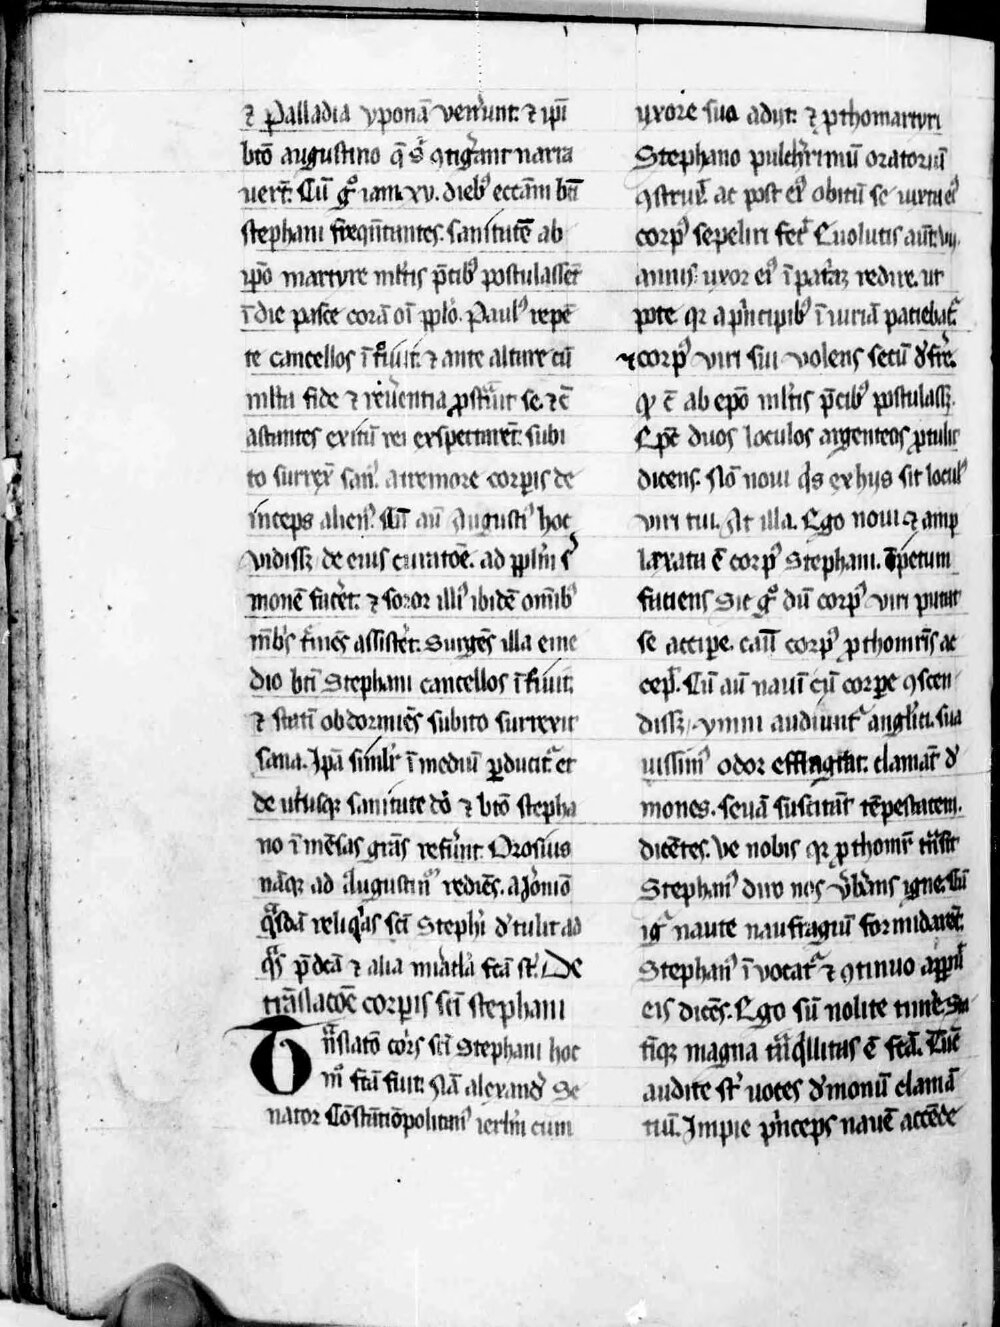 ⁊ Palladia yponā ven̄unt. ⁊ ip̄i
btō augustino q̄ s' ꝯtigerant narra
uert̄. Cū gͦ iam xv. dieb⁹ eccām bti
stephani freq̄ntantes. sanitatē ab
ip̄o martyre mltis p̄cib⁹ postulassēt
ī die pasce corā oī pplo. Paul⁹ repē
te cancellos ītiuit. ⁊ ante altare cū
mlta fide ⁊ reuerentia ꝓstauit se. ⁊ c̄
astantes exitū rei exspectarēt. subi
to surrex̄ san⁹. a tremore corꝑis de
inceps alien⁹. Cū au augusti⁹ hoc
vidissꝫ de eius curatōe. ad pplm s'
monē facet. ⁊ soror illi⁹ ibidē omib⁹
mēbris tmēs assistet. Surgēs illa e me
dio bti Stephani cancellos ītiuit.
⁊ stati obdormiēs subito surrexit
sana. Ipā similr ī mediū ꝑducit̄ et
de utiusqꝫ sanitate dō ⁊ btō stepha
no īmēsas grās refūnt. Orosius
nāqꝫ ad Augustin⁹ rediēs. a Jōnimo
q̄sdā reliqas sci Stephi d'tulit ad
q̄s p̄dcā ⁊ alia miracla fcā st̄. De
trāslacōe corꝑis sci stephani
Trāslatō corꝑs sci Stephani hoc
mͦ fcā fuit. Nā alexand' Se
nator Cōstātiōpolitan⁹ ierlm cum
uxore sua adijt. ⁊ ꝓthomartyri
Stephano pulchrimū oratoriū
ꝯstrux̄ ac post ei⁹ obitū se iuxta ei⁹
corp⁹ sepeliri fec̄ Euolutis aūt. vij.
annis uxor ei⁹ ī patriā redire. ut
pote qꝛ a pincipib⁹ īiuriā patiebat̄
⁊ corp⁹ viri sui volens secū d'fre.
Qͩ c̄ ab epō mltis p̄cib⁹ postulassꝫ.
Epc̄ duos loculos argenteos ꝓtulit
dicens. Nō noui q̄s ex hijs sit locul⁹
viri tui. At illa. Ego noui ⁊ amp
lexata ē corp⁹ Stephani. Īpetum
faciens Sic gͦ dū corp⁹ viri putat
se accipe. casu corp⁹ ꝓthomris ac
cep̄. Cū au nauī cū corpe ꝯscen
dissꝫ. ymni audiunt̄ anglici. sua
uissim⁹ odor efflagrat. clamāt d'
mones. seuā suscitāt tēpestatem.
dicētes. Ve nobis qꝛ ꝓthomr trāsit
Stephan⁹ diro nos v'bans igne. Cū
ig' naute naufragiū formidarēt.
Stephan⁹ īvocat̄ ⁊ ꝯtinuo apparuit
eis dicēs. Ego sū nolite timē. Sta
tīqꝫ magna trāq̄llitas ē fcā. Tūc
audite st̄ uoces d'monū clamā
tiū. Impie p̄nceps nauē accēde